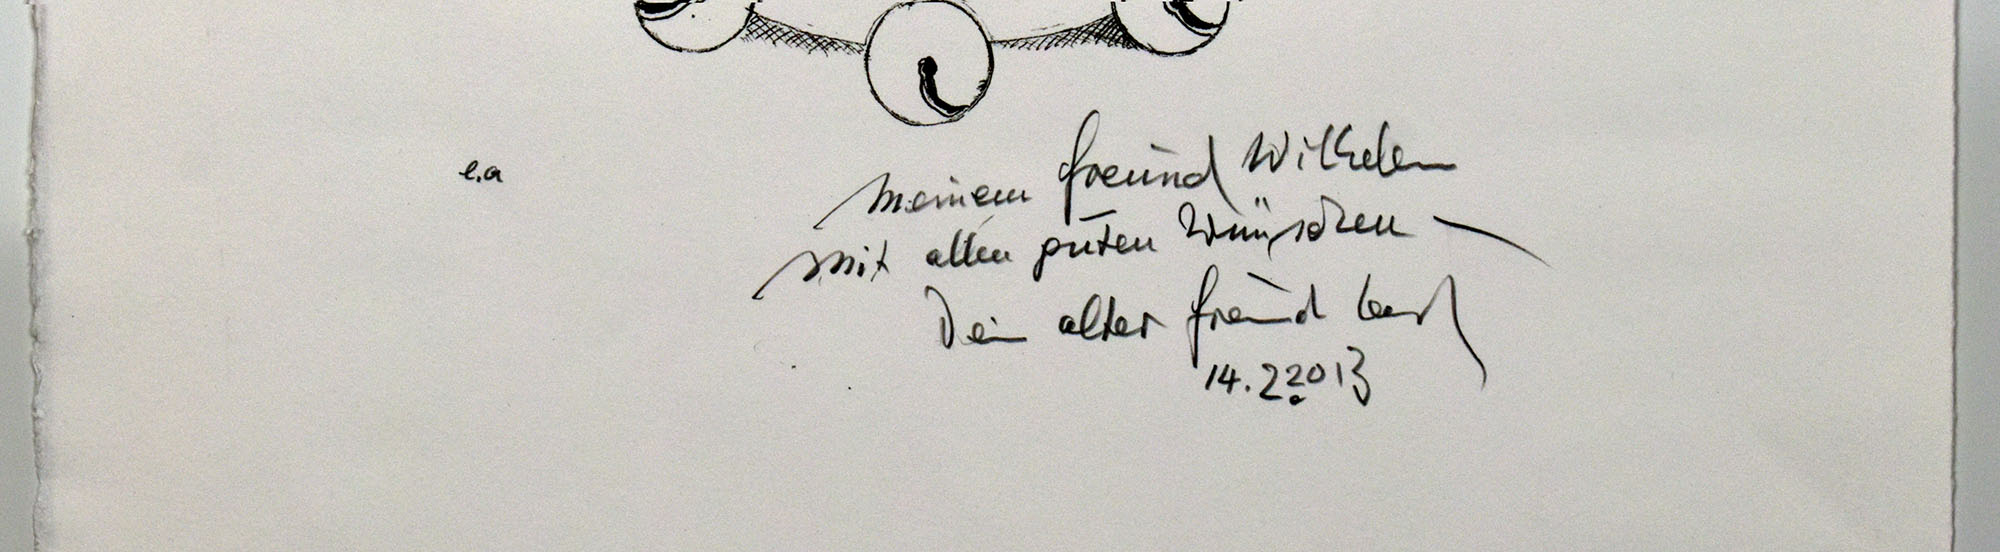 e.a
meinem Freund Wilhelm
mit allen guten Wünschen –
Dein alter Freund
14.2.2013